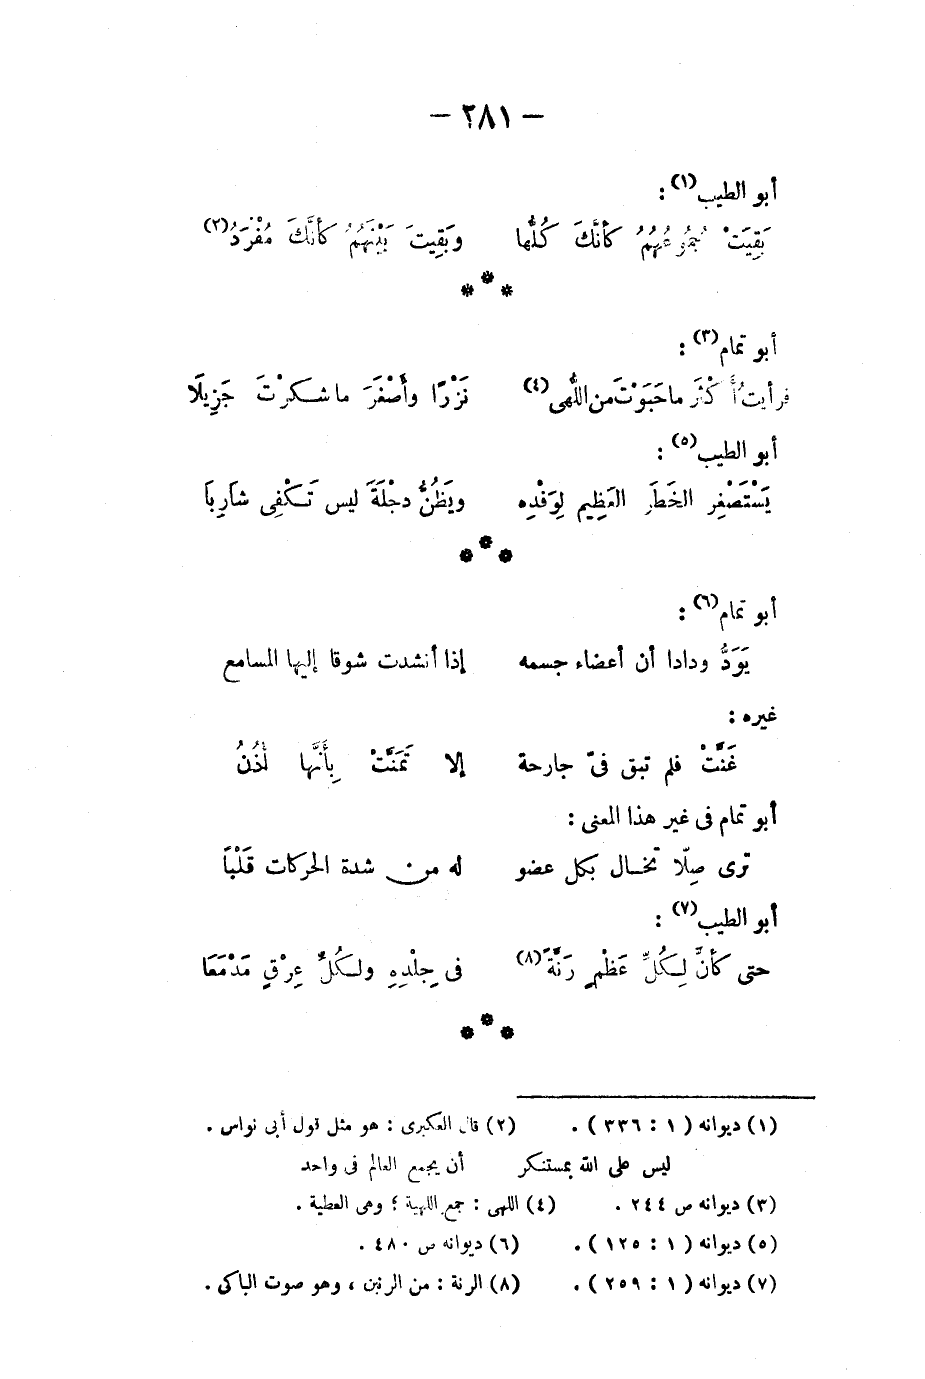 — ٢٨١ —
أبو الطيب(١) :
بَقِيَتْ جُمُوعُهُمُ كأنَّكَ كُلُّها وبَقِيتَ بَيْنَهُمُ كأنَّكَ مُفْرَدُ(٢)
* * *
أبو تمام(٣) :
فرأيتُ أَكْثَرَ ما حَبَوْتَ من اللُّهى(٤) نَزْرًا وأَصْغَرَ ما شكرْتَ جَزِيلَا
أبو الطيب(٥) :
يَسْتَصْغِر الخَطَرَ العَظِيم لِوَفْدِه ويَظُنُّ دجْلَةَ ليس تَكْفِى شارِبا
* * *
أبو تمام(٦) :
يَوَدُّ ودادا أن أعضاء جسمه إذا أنشدت شوقا إليها المسامع
غيره :
غَنَّتْ فلم تبق فىّ جارحة إلا تَمَنَّتْ بِأَنَّها أُذُنُ
أبو تمام فى غير هذا المعنى :
ترى صِلًا تخال بكل عضو له من شدة الحركات قَلْبَا
أبو الطيب(٧) :
حتى كأنَّ لِكُلِّ عَظْمٍ رَنَّةً(٨) فى جِلْدِهِ ولكُلِّ عِرْقٍ مَدْمَعَا
* * *
(١) ديوانه ( ١ : ٣٣٦ ) . (٢) قال العكبرى : هو مثل قول أبى نواس .
ليس على الله بمستنكر أن يجمع العالم فى واحد
(٣) ديوانه ص ٢٤٤ . (٤) اللهى : جمع اللهية ؛ وهى العطية .
(٥) ديوانه ( ١ : ١٢٥ ) . (٦) ديوانه ص ٤٨٠ .
(٧) ديوانه ( ١ : ٢٥٩ ) . (٨) الرنة : من الرنين ، وهو صوت الباكى .